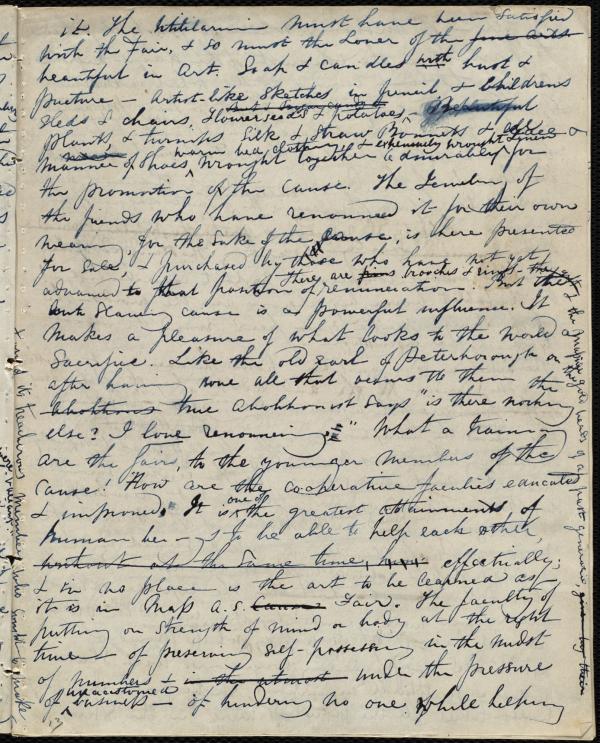 it. The Utilitarian must have been satisfied
with the Fair, & so must the Lover of the fine arts
beautiful in Art. Soap & candles with bust &
picture — Artist-like sketches in pencil, & Childrens
sleds & chairs, Flower seeds & potatoes,
plants, & turnips Silk & Straw Bonnets &
warm bed clothing & exquisitely wrought
manner of Shoes, wrought together admirably for
the promotion of the Cause. The Jewelry of
the friends who have renounced it for their own
wearing, for the Sake of the Cause, is here presented
for Sale, & purchased by those who have not yet
There are brooches & rings
advanced to that position of renunciation. But the
Slavery cause is a powerful influence. It
makes a pleasure of what looks to the world a
Sacrifice. Like the old earl of Peterborough
after having done all that occurs to them the
Abolitions true Abolitionist says "is there nothing
else? I love renouncing." What a training
are the fairs, to the younger members of the
Cause! How are the co-operative faculties educated
& improved. It is one of the greatest attainments of
human beings to be able to help each other,
without at the same time, effectually;
& in no place is the art to be learned as
it is in Mass A.S. Cause Fair. The faculty of
putting on strength of mind or body at the right
time — of preserving self-possession in the midst
of numbers & in the utmost under the pressure
of unaccustomed business — of hindering no one while helping
& the massive gold beads of a past generation, given by their